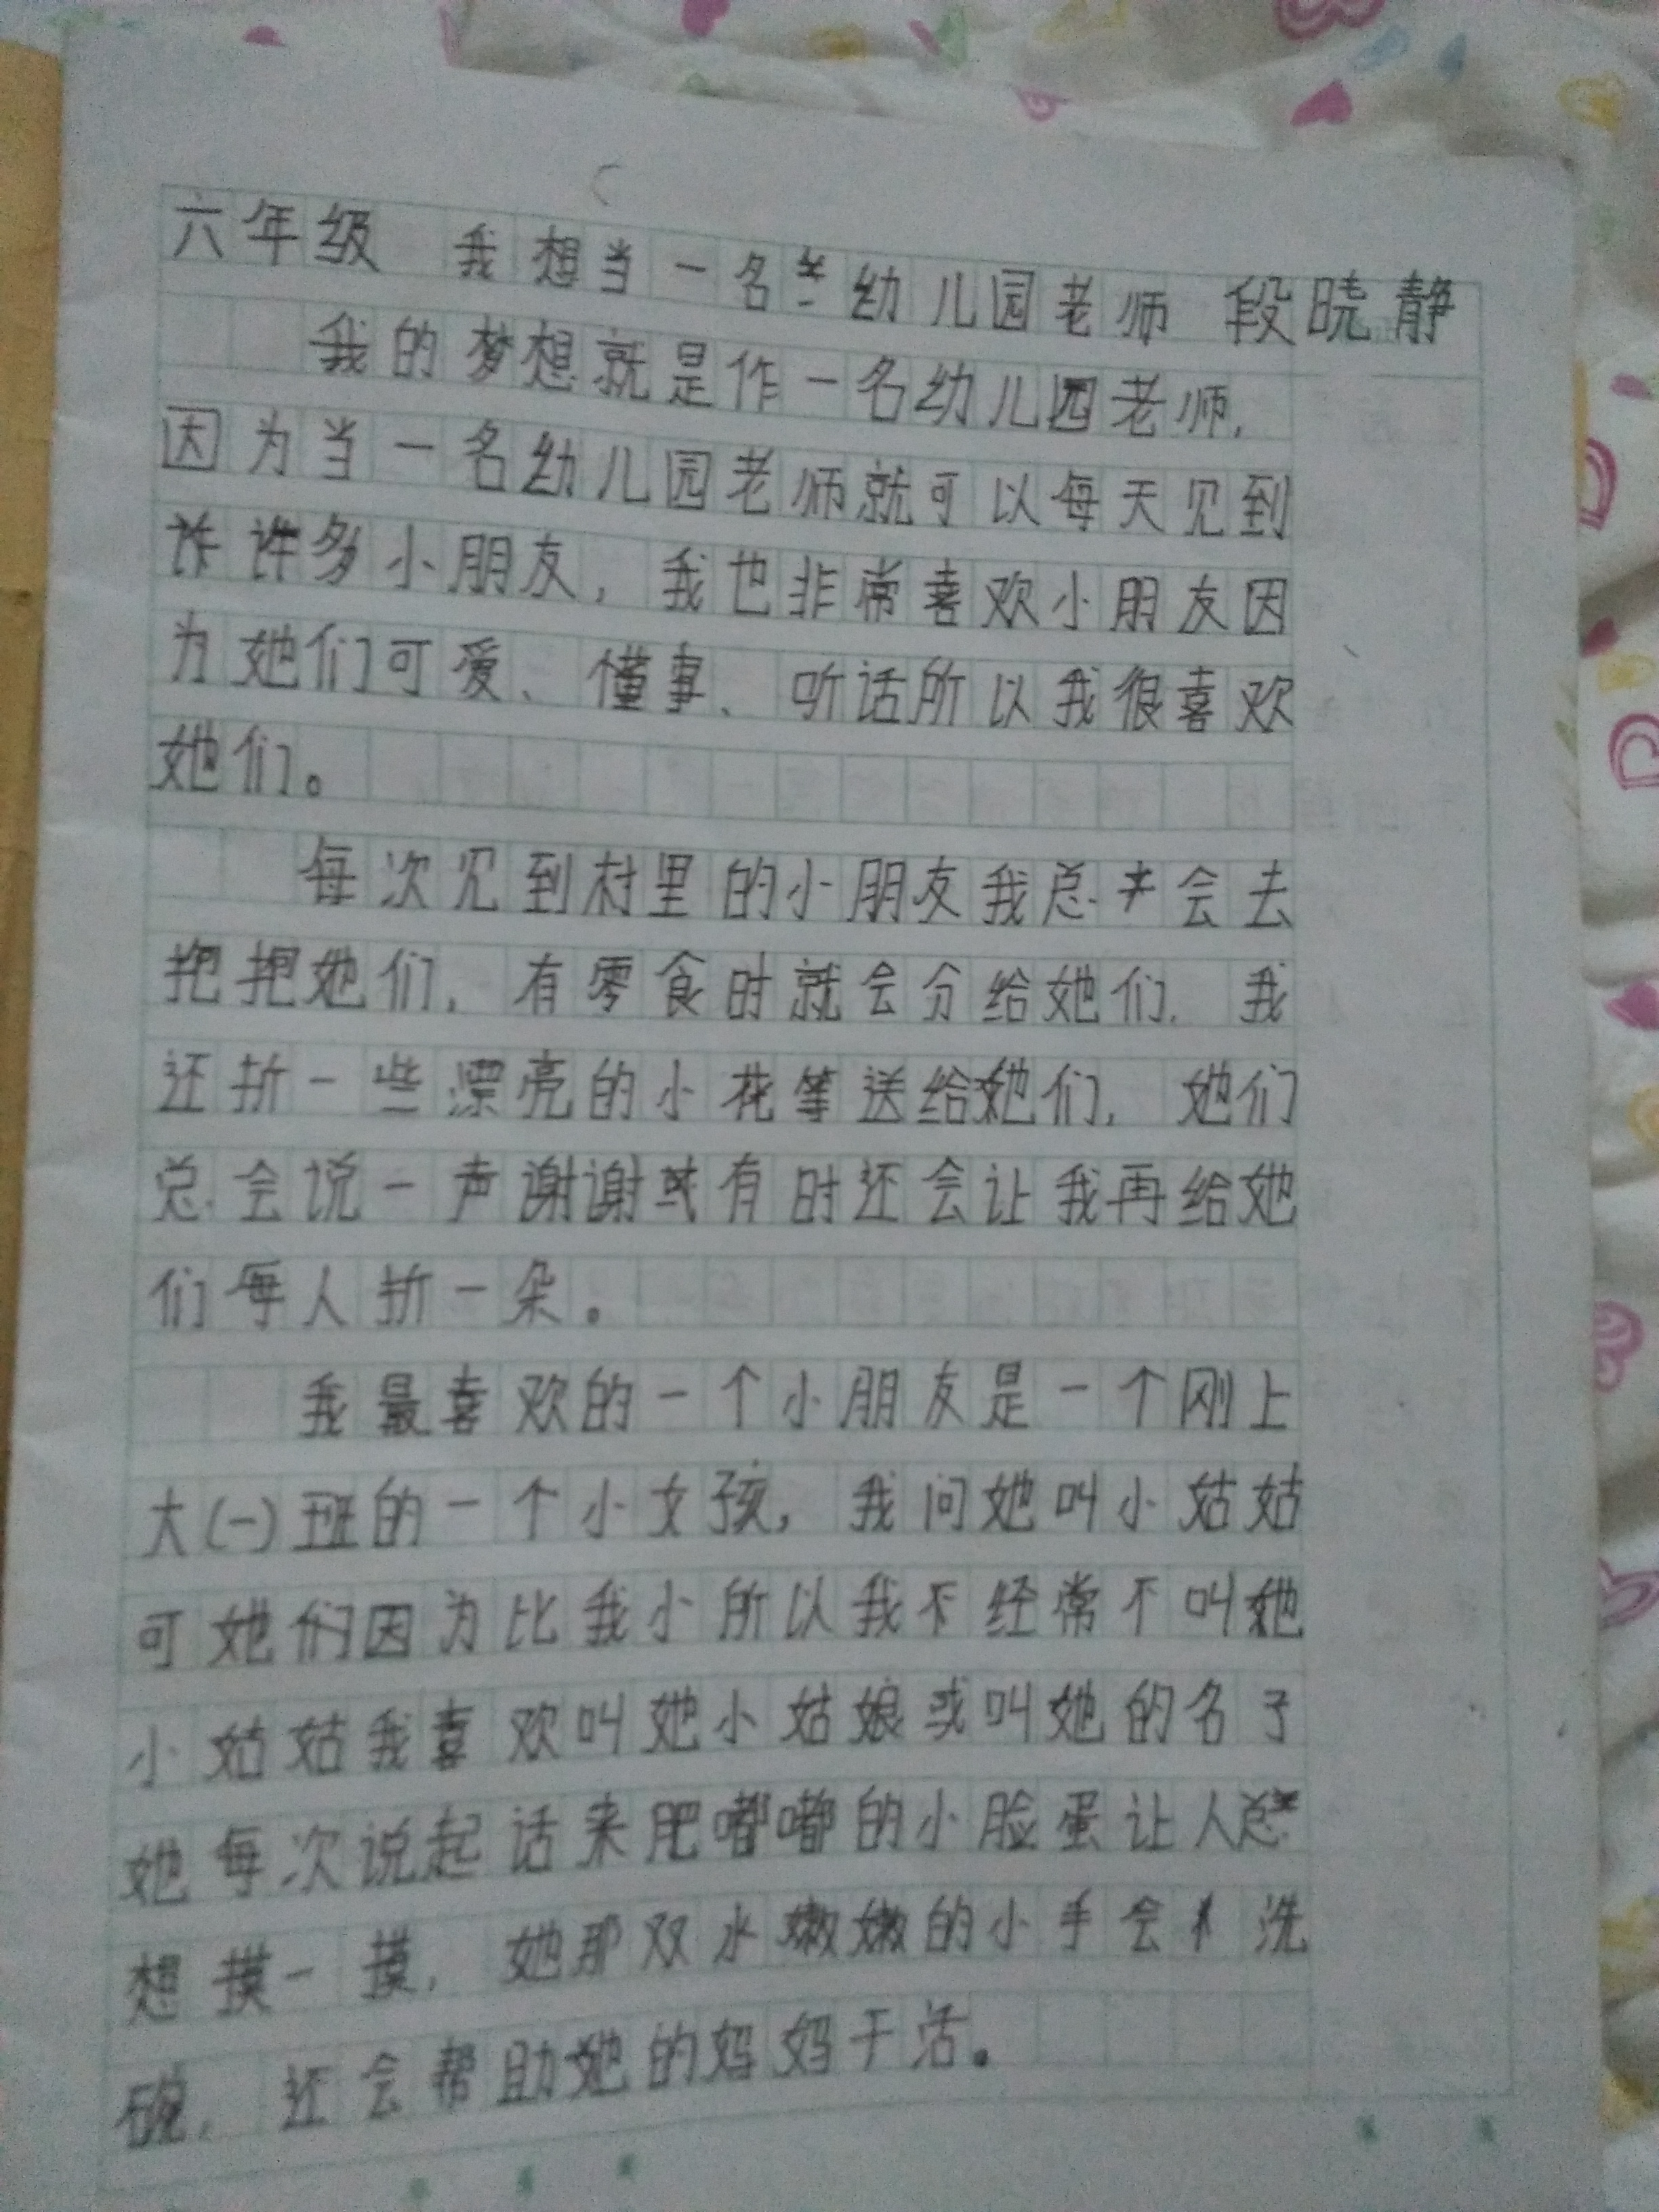 六年级 我想当一名幼儿园老师 段晓静
我的梦想就是作一名幼儿园老师,
因为当一名幼儿园老师就可以每天见到
许多小朋友,我也非常喜欢小朋友因
为她们可爱、懂事、听话所以我很喜欢
她们。
每次见到村里的小朋友我总会去
抱抱她们,有零食时就会分给她们,我
还折一些漂亮的小花等送给她们,她们
总会说一声谢谢或有时还会让我再给她
们每人折一朵。
我最喜欢的一个小朋友是一个刚上
大(一)班的一个小女孩,我问她叫小姑姑
可她们因为比我小所以我不经常不叫她
小姑姑我喜欢叫她小姑娘或叫她的名子
她每次说起话来肥嘟嘟的小脸蛋让人总
想摸一摸,她那双水嫩嫩的小手会洗
碗,还会帮助她的妈妈干活。